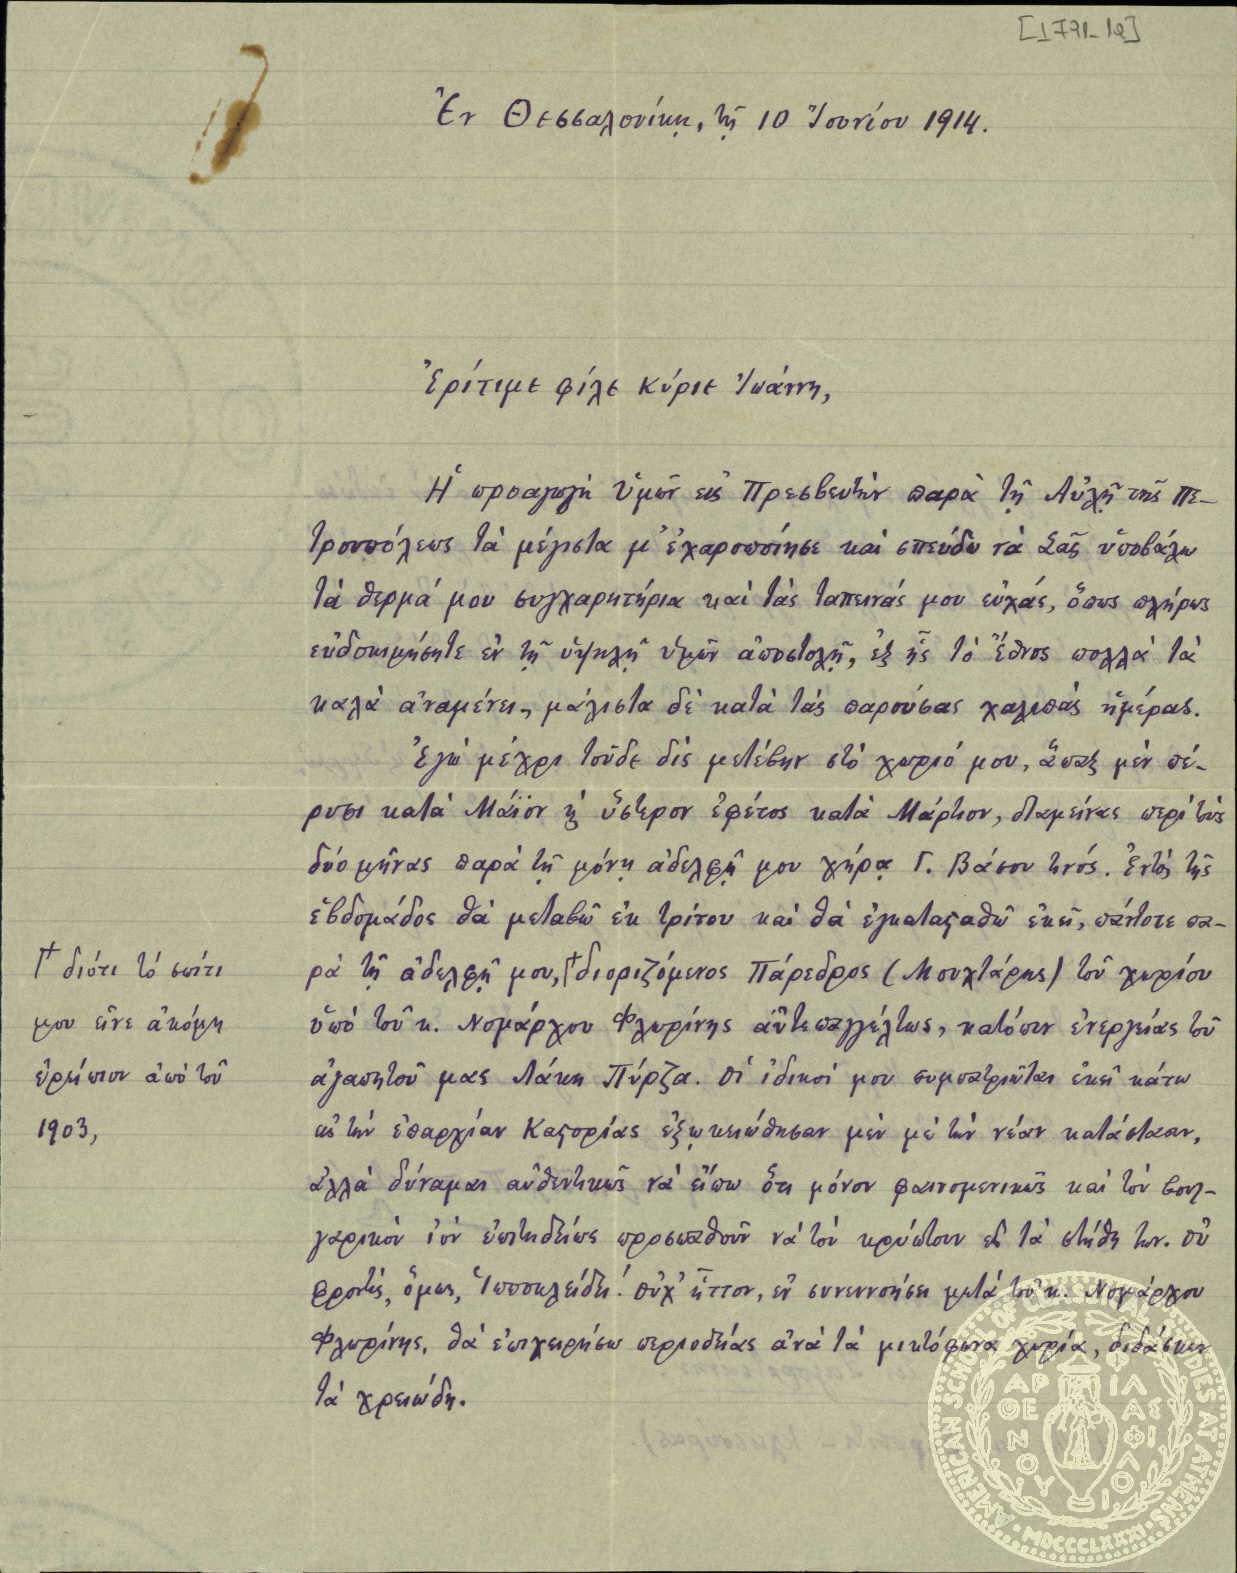 [1721-12]
Ἐν Θεσσαλονίκῃ, τῇ 10 Ἰουνίου 1914.
Ἐρίτιμε φίλε Κύριε Ἰωάννη,
Ἡ προαγωγή Ὑμῶν εἰς Πρεσβευτὴν παρὰ τῇ Αὐλῇ τῆς Πε-
τρουπόλεως τὰ μέγιστα μ' ἐχαροποίησε καὶ σπεύδω νὰ Σᾶς ὑποβάλω
τὰ θερμά μου συγχαρητήρια καὶ τὰς ταπεινάς μου εὐχάς, ὅπως πλήρως
εὐδοκιμήσητε ἐν τῇ ὑψηλῇ ὑμῶν ἀποστολῇ, ἐξ ἧς τὸ Ἔθνος πολλὰ τὰ
καλὰ ἀναμένει, μάλιστα δὲ κατὰ τὰς παρούσας χαλεπὰς ἡμέρας.
Ἐγὼ μέχρι τοῦδε δὶς μετέβην στὸ χωριό μου, ἅπαξ μὲν πέ-
ρυσι κατὰ Μάϊον κ' ὕστερον ἐφέτος κατὰ Μάρτιον, διαμείνας περὶ τοὺς
δύο μῆνας παρὰ τῇ μόνῃ ἀδελφῇ μου χήρᾳ Γ. Βάσου τινός. Ἐντὸς τῆς
ἑβδομάδος θὰ μεταβῶ ἐκ τρίτου καὶ θὰ ἐγκατασταθῶ ἐκεῖ, πάντοτε πα-
ρὰ τῇ ἀδελφῇ μου, διοριζόμενος Πάρεδρος (Μουχτάρης) τοῦ χωρίου
ὑπὸ τοῦ κ. Νομάρχου Φλωρίνης αὐτεπαγγέλτως, κατόπιν ἐνεργείας τοῦ
ἀγαπητοῦ μας Λάκη Πύρζα. Οἱ ἰδικοί μου συμπατριῶται ἐκεῖ κάτω
εἰς τὴν ἐπαρχίαν Καστορίας ἐξῳκειώθησαν μὲν μὲ τὴν νέαν κατάστασιν,
ἀλλὰ δύναμαι αὐθεντικῶς νὰ εἴπω ὅτι μόνον φαινομενικῶς καὶ τὸν βουλ-
γαρικὸν ἰὸν ἐπιτηδείως προσπαθοῦν νὰ τὸν κρύπτουν εἰς τὰ στήθη των. Οὐ
φροντὶς, ὅμως, Ἱπποκλείδει! Οὐχ' ἧττον, ἐν συνεννοήσει μετὰ τοῦ κ. Νομάρχου
Φλωρίνης, θὰ ἐπιχειρήσω περιοδείας ἀνὰ τὰ μικτόφωνα χωρία, διδάσκων
τὰ χρειώδη.
† διότι τὸ σπίτι
μου εἶνε ἀκόμη
ἐρείπιον ἀπὸ τοῦ
1903,
AMERICAN SCHOOL OF CLASSICAL STUDIES AT ATHENS
ΑΡΙΣΤΟΝ
MDCCCLXXXI